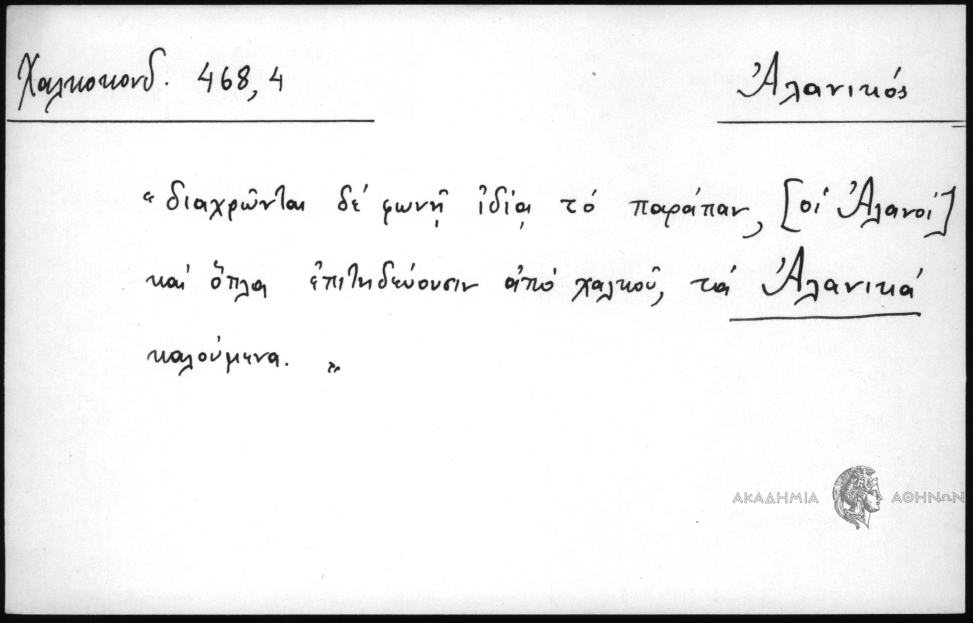 Χαλκοκονδ. 468,4
Ἀλανικός
"διαχρῶνται δέ φωνῇ ἰδίᾳ τό παράπαν, [οἱ Ἀλανοί]
καί ὅπλα ἐπιτηδεύουσιν ἀπό χαλκοῦ, τά Ἀλανικά
καλούμενα. "
ΑΚΑΔΗΜΙΑ ΑΘΗΝΩΝ